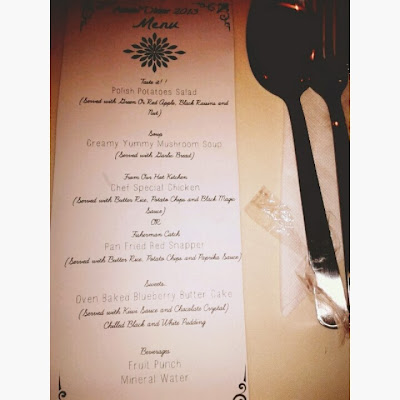 Dinner 2013
Menu
Taste it!!
Polish Potatoes Salad
(Served with Green Or Red Apple, Black Raisins and
Nut)
Soup
Creamy Yummy Mushroom Soup
(Served with Garlic Bread)
From Our Hot Kitchen
Chef Special Chicken
(Served with Butter Rice, Potato Chips and Black Magic
Sauce)
OR
Fisherman Catch
Pan Fried Red Snapper
(Served with Butter Rice, Potato Chips and Paprika Sauce)
Sweets
Oven Baked Blueberry Butter Cake
(Served with Kiwi Sauce and Chocolate Crystal)
Chilled Black and White Pudding
Beverages
Fruit Punch
Mineral Water